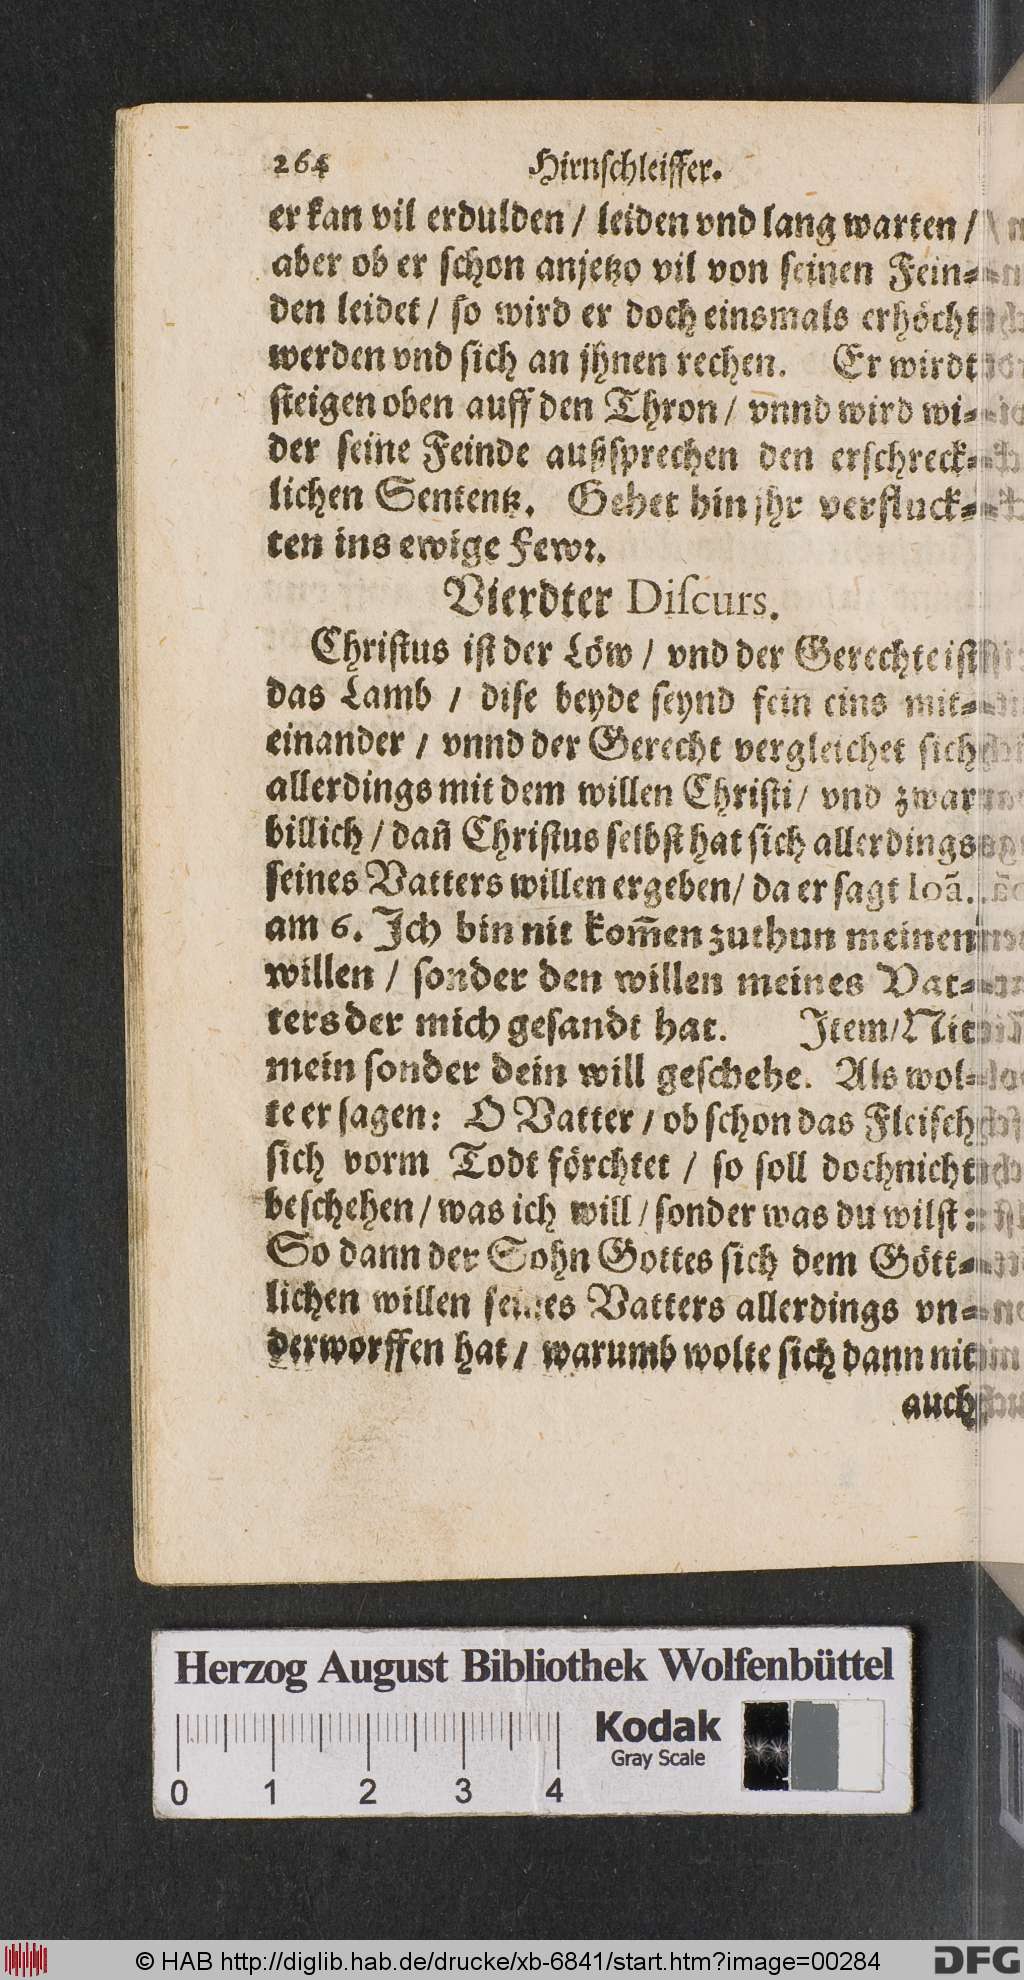 264 Hirnschleiffer.
er kan vil erdulden / leiden vnd lang warten /
aber ob er schon anjetzo vil von seinen Fein-
den leidet / so wird er doch einsmals erhöcht
werden vnd sich an jhnen rechen. Er wirdt
steigen oben auff den Thron / vnnd wird wi-
der seine Feinde außsprechen den erschreck-
lichen Sententz. Gehet hin jhr verfluck-
ten ins ewige Fewr.
Vierdter Discurs.
Christus ist der Löw / vnd der Gerechte ist
das Lamb / dise beyde seynd fein eins mit-
einander / vnnd der Gerecht vergleichet sich
allerdings mit dem willen Christi / vnd zwar
billich / dañ Christus selbst hat sich allerdings
seines Vatters willen ergeben / da er sagt Ioã.
am 6. Ich bin nit kom̃en zuthun meinen
willen / sonder den willen meines Vat-
ters der mich gesandt hat. Item / Nit
mein sonder dein will geschehe. Als wol-
te er sagen: O Vatter / ob schon das Fleisch
sich vorm Todt förchtet / so soll doch nicht
beschehen / was ich will / sonder was du wilst:
So dann der Sohn Gottes sich dem Gött-
lichen willen seines Vatters allerdings vn-
derworffen hat / warumb wolte sich dann nit
auch
Herzog August Bibliothek Wolfenbüttel
Kodak
Gray Scale
0 1 2 3 4
© HAB http://diglib.hab.de/drucke/xb-6841/start.htm?image=00284
DFG